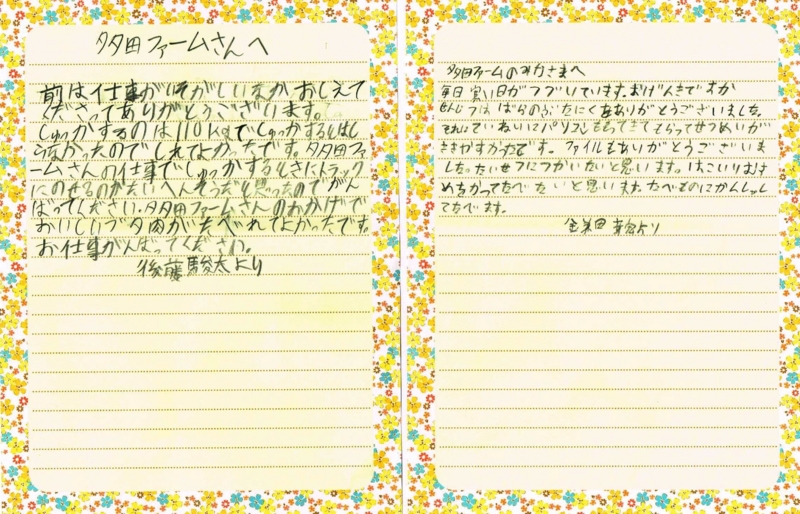 多田ファームさんへ
前は仕事がいそがしいなか おしえて
くださってありがとうございます。
しゅっかするのは110kgでしゅっかするとはし
らなかったのでしれてよかったです。多田ファ
ームさんの仕事でしゅっかするときにトラック
にのせるのがたいへんそうだと思ったのでがん
ばってください。多田ファームさんのおかげで
おいしいブタ肉がたべれてよかったです。
お仕事がんばってください。
後藤 駿太より
多田ファームのみなさまへ
毎日寒い日がつづいています。おげんきですか
せんじつは ばらのぶたにくをありがとうございました。
それにていねいにパソコンももってきてもらってせつめいが
ききやすかったです。ファイルもありがとうございま
した。たいせつにつかいたいと思います。
もちかってたべたいと思います。たべものにかんしゃし
てたべます。
より